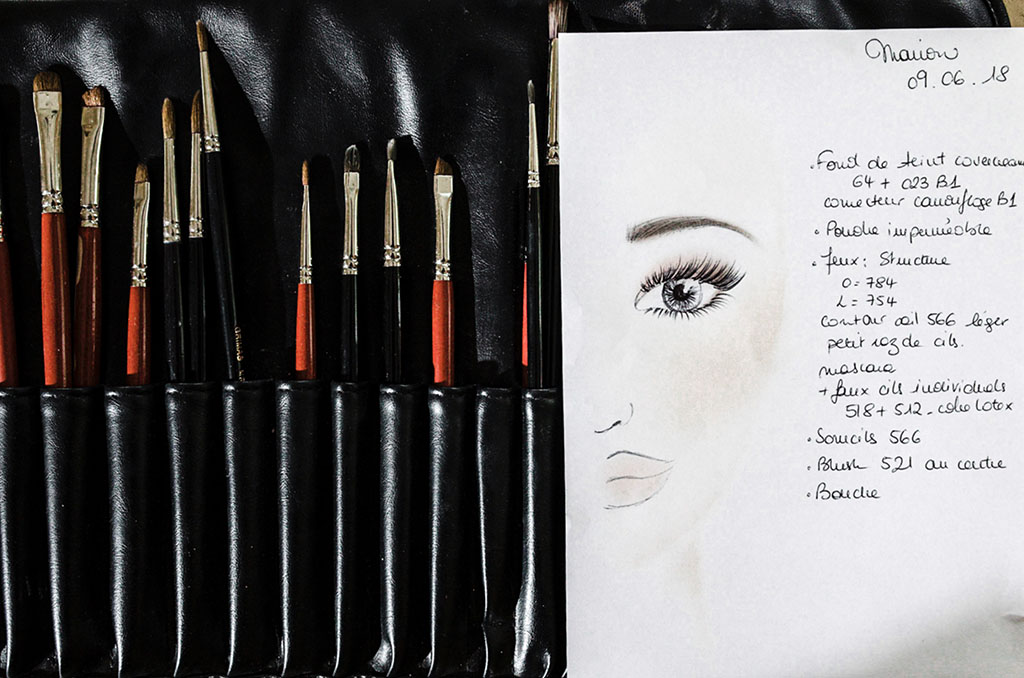 Marion
09.06.18
. Fond de teint
64 + 023 B1
correcteur camouflage B1
. Poudre imperméable
. Yeux : Structure
O = 784
L = 754
contour œil 566 léger
petit raz de cils.
mascara
+ faux cils individuels
518 + 512 - colle latex
. Sourcils 566
. Blush 521 au centre
. Bouche